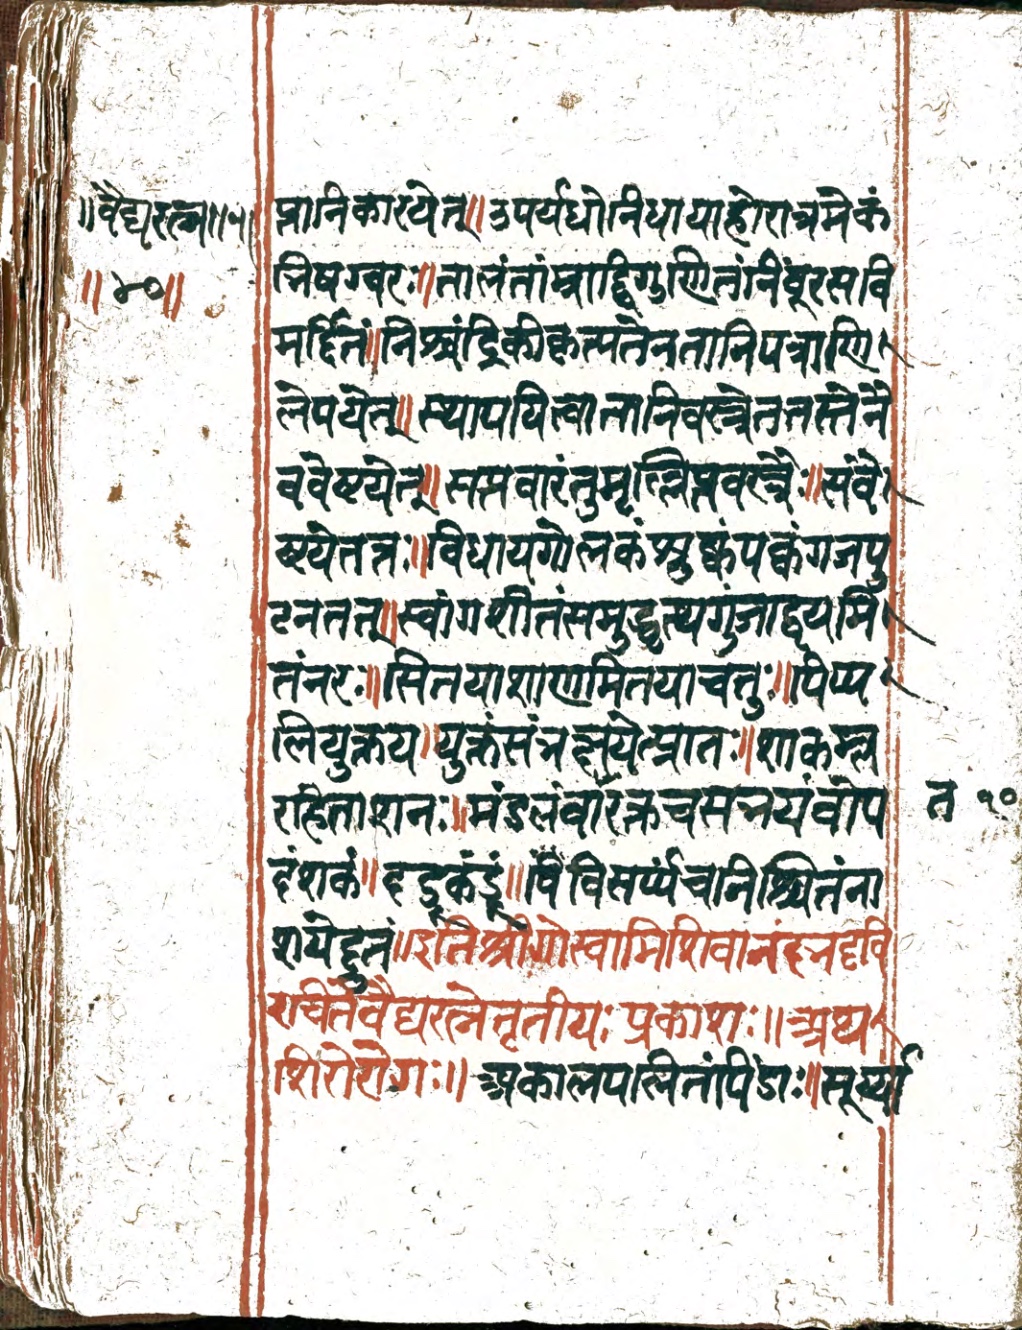 ॥वैद्यरत्न॥॥५॥
॥४०॥
त्राणि कारयेत्॥उपर्यधोनिधायाहोरात्रमेकं
भिषग्वरः॥तालंतांम्राद्द्विगुणितंनिंबूरसवि
मर्द्दितं॥निश्चंद्रिकीकृत्यतेनतानिपत्राणि
लेपयेत्॥स्थापयित्वातानिवस्त्रेततस्तेनै
ववेष्टयेत्॥सप्तवारंतुमृल्लिप्तवस्त्रैः॥संवे
ष्टयेत्ततः॥विधायगोलकंशुष्कंपक्वंगजपु
टेनतत्॥स्वांगशीतंसमुद्धृत्यगुंजाद्वयमि
तंनरः॥सितयाशाणमितयाचतुः॥पिप्प
लियुक्तय।युक्तंसंभक्षयेत्प्रातः॥शाकाम्ल
रहिताशनः॥मंडलंवारक्तचसभयंवोप
त १०
दंशकं॥दद्रूकंडूं॥विसर्प्पंचानिश्चितंना
शयेद्द्रुतं॥इतिश्रीगोस्वामिशिवानंदभट्टवि
रचितेवैद्यरत्नेतृतीयः प्रकाशः॥अथ
शिरोरोगः॥ अकालपालितंपिंडाः॥सूर्य्या